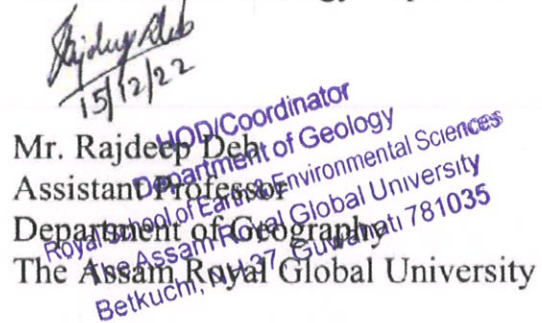 15/12/22
Mr. Rajdeep Deb
Assistant Professor
Department of Geography
The Assam Royal Global University
HOD/Coordinator
Department of Geology
Royal School of Earth & Environmental Sciences
The Assam Royal Global University
Betkuchi, NH-37, Guwahati 781035